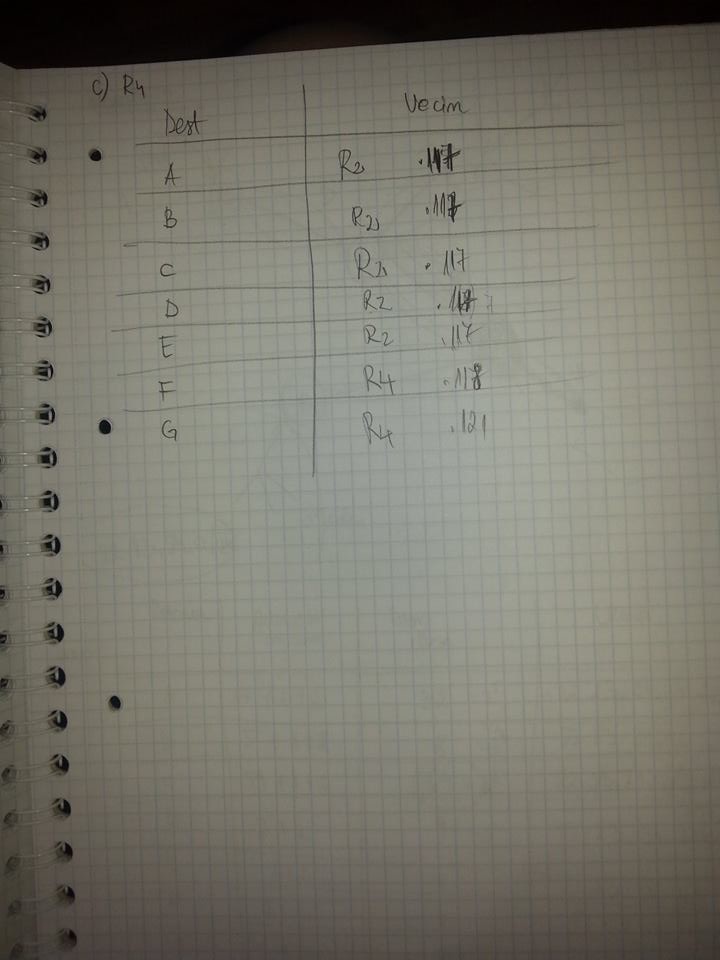 c) R4
Dest Vecin
A R2 .117
B R2 .117
C R2 .117
D R2 .117
E R2 .117
F R4 .118
G R4 .121